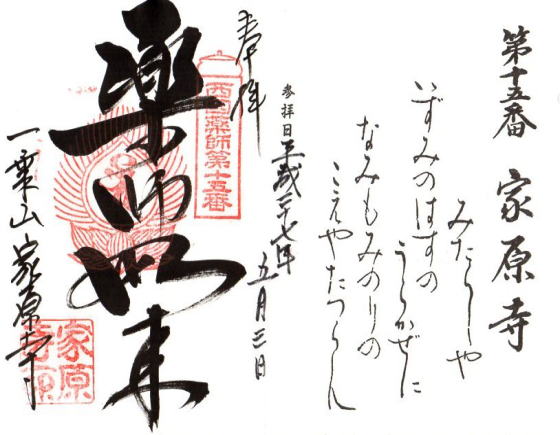 第十五番 家原寺
みたらしや
いずみのはすの
うらかぜに
なみもみのりの
こえやたつらん
参拝日 平成二十七年
五月三日
奉拝
西国薬師第十五番
薬師如来
一乗山 家原寺
家原寺印